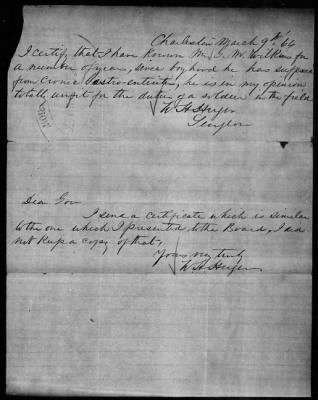 Charleston March 9th 64
I certify that I have known Mr G. W. Wilkins for
a number of years, since boyhood he has suffered
from Cronic Gastro-enteritis, he is in my opinion
totally unfit for the duties of a soldier in the field
W H Huger
Surgeon
Dear Gov
I send a certificate which is similar
to the one which I presented to the Board, I did
not Keep a copy of that.
Yours very truly
W H Huger